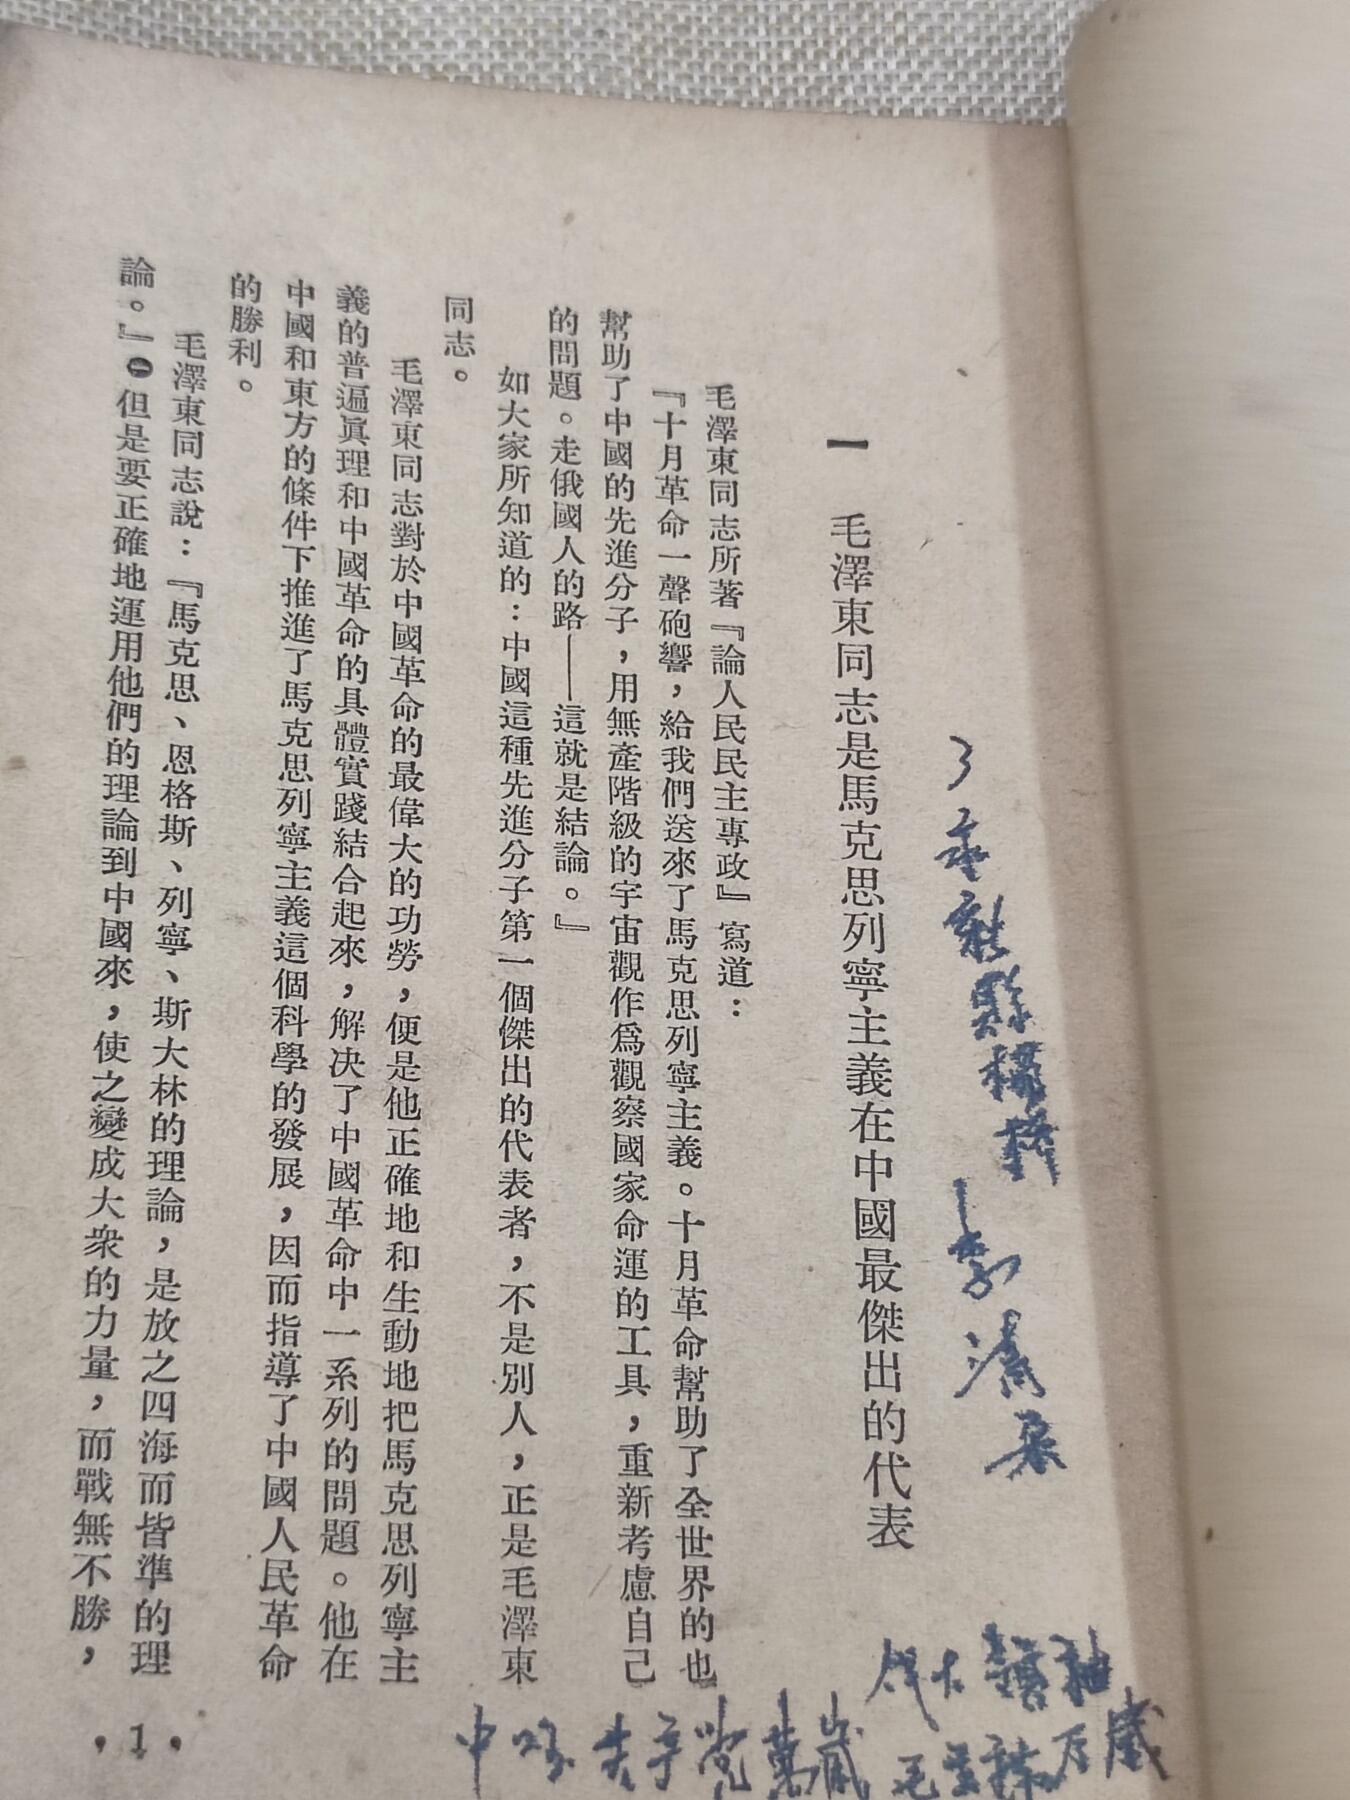 一　毛澤東同志是馬克思列寧主義在中國最傑出的代表
毛澤東同志所著『論人民民主專政』寫道：
『十月革命一聲砲響，給我們送來了馬克思列寧主義。十月革命幫助了全世界的也
幫助了中國的先進分子，用無產階級的宇宙觀作爲觀察國家命運的工具，重新考慮自己
的問題。走俄國人的路——這就是結論。』
如大家所知道的：中國這種先進分子第一個傑出的代表者，不是別人，正是毛澤東
同志。
毛澤東同志對於中國革命的最偉大的功勞，便是他正確地和生動地把馬克思列寧主
義的普遍眞理和中國革命的具體實踐結合起來，解决了中國革命中一系列的問題。他在
中國和東方的條件下推進了馬克思列寧主義這個科學的發展，因而指導了中國人民革命
的勝利。
毛澤東同志說：『馬克思、恩格斯、列寧、斯大林的理論，是放之四海而皆準的理
論。』㊀但是要正確地運用他們的理論到中國來，使之變成大衆的力量，而戰無不勝，
•1•
偉大領袖
毛主席万歲
中 共 党萬歲